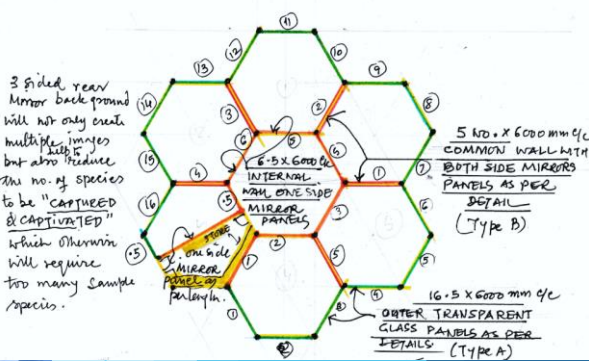 3 sided rear
Mirror back ground
will not only create
multiple images
helps to
but also reduce
the no. of species
to be "CAPTURED
& CAPTIVATED"
which otherwise
will require
too many sample
species.
11
12
10
13
9
14
3
2
8
6
5
6
15
4
1
7
16
.5
3
6
.5
1
2
5
5
1
3
4
2
6.5 x 6000 c/c
INTERNAL
WALL ONE SIDE
MIRROR
PANELS
STORE
one side
MIRROR
panel as
per length.
5 NO. X 6000 mm c/c
COMMON WALL WITH
BOTH SIDE MIRRORS
PANELS AS PER
DETAIL
(Type B)
16.5 X 6000 mm c/c
OUTER TRANSPARENT
GLASS PANELS AS PER
DETAILS (Type A)